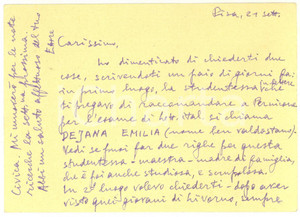 Pisa, 21 sett.
Carissimo,
ho dimenticato di chiederti due
cose, scrivendoti un paio di giorni fa:
in primo luogo, la studentessa che
ti pregavo di raccomandare a
per l'esame di Lett. Ital. si chiama
DEJANA EMILIA (nome ben valdostano).
Vedi se puoi far due righe per questa
studentessa - maestra - madre di famiglia,
che è poi anche studiosa, e scrupolosa.
In 2° luogo volevo chiederti - dopo aver
visto quei giovani di Livorno, sempre
Civica. Mi
ricerche la prossima.
Abbi un saluto affettuoso dal tuo